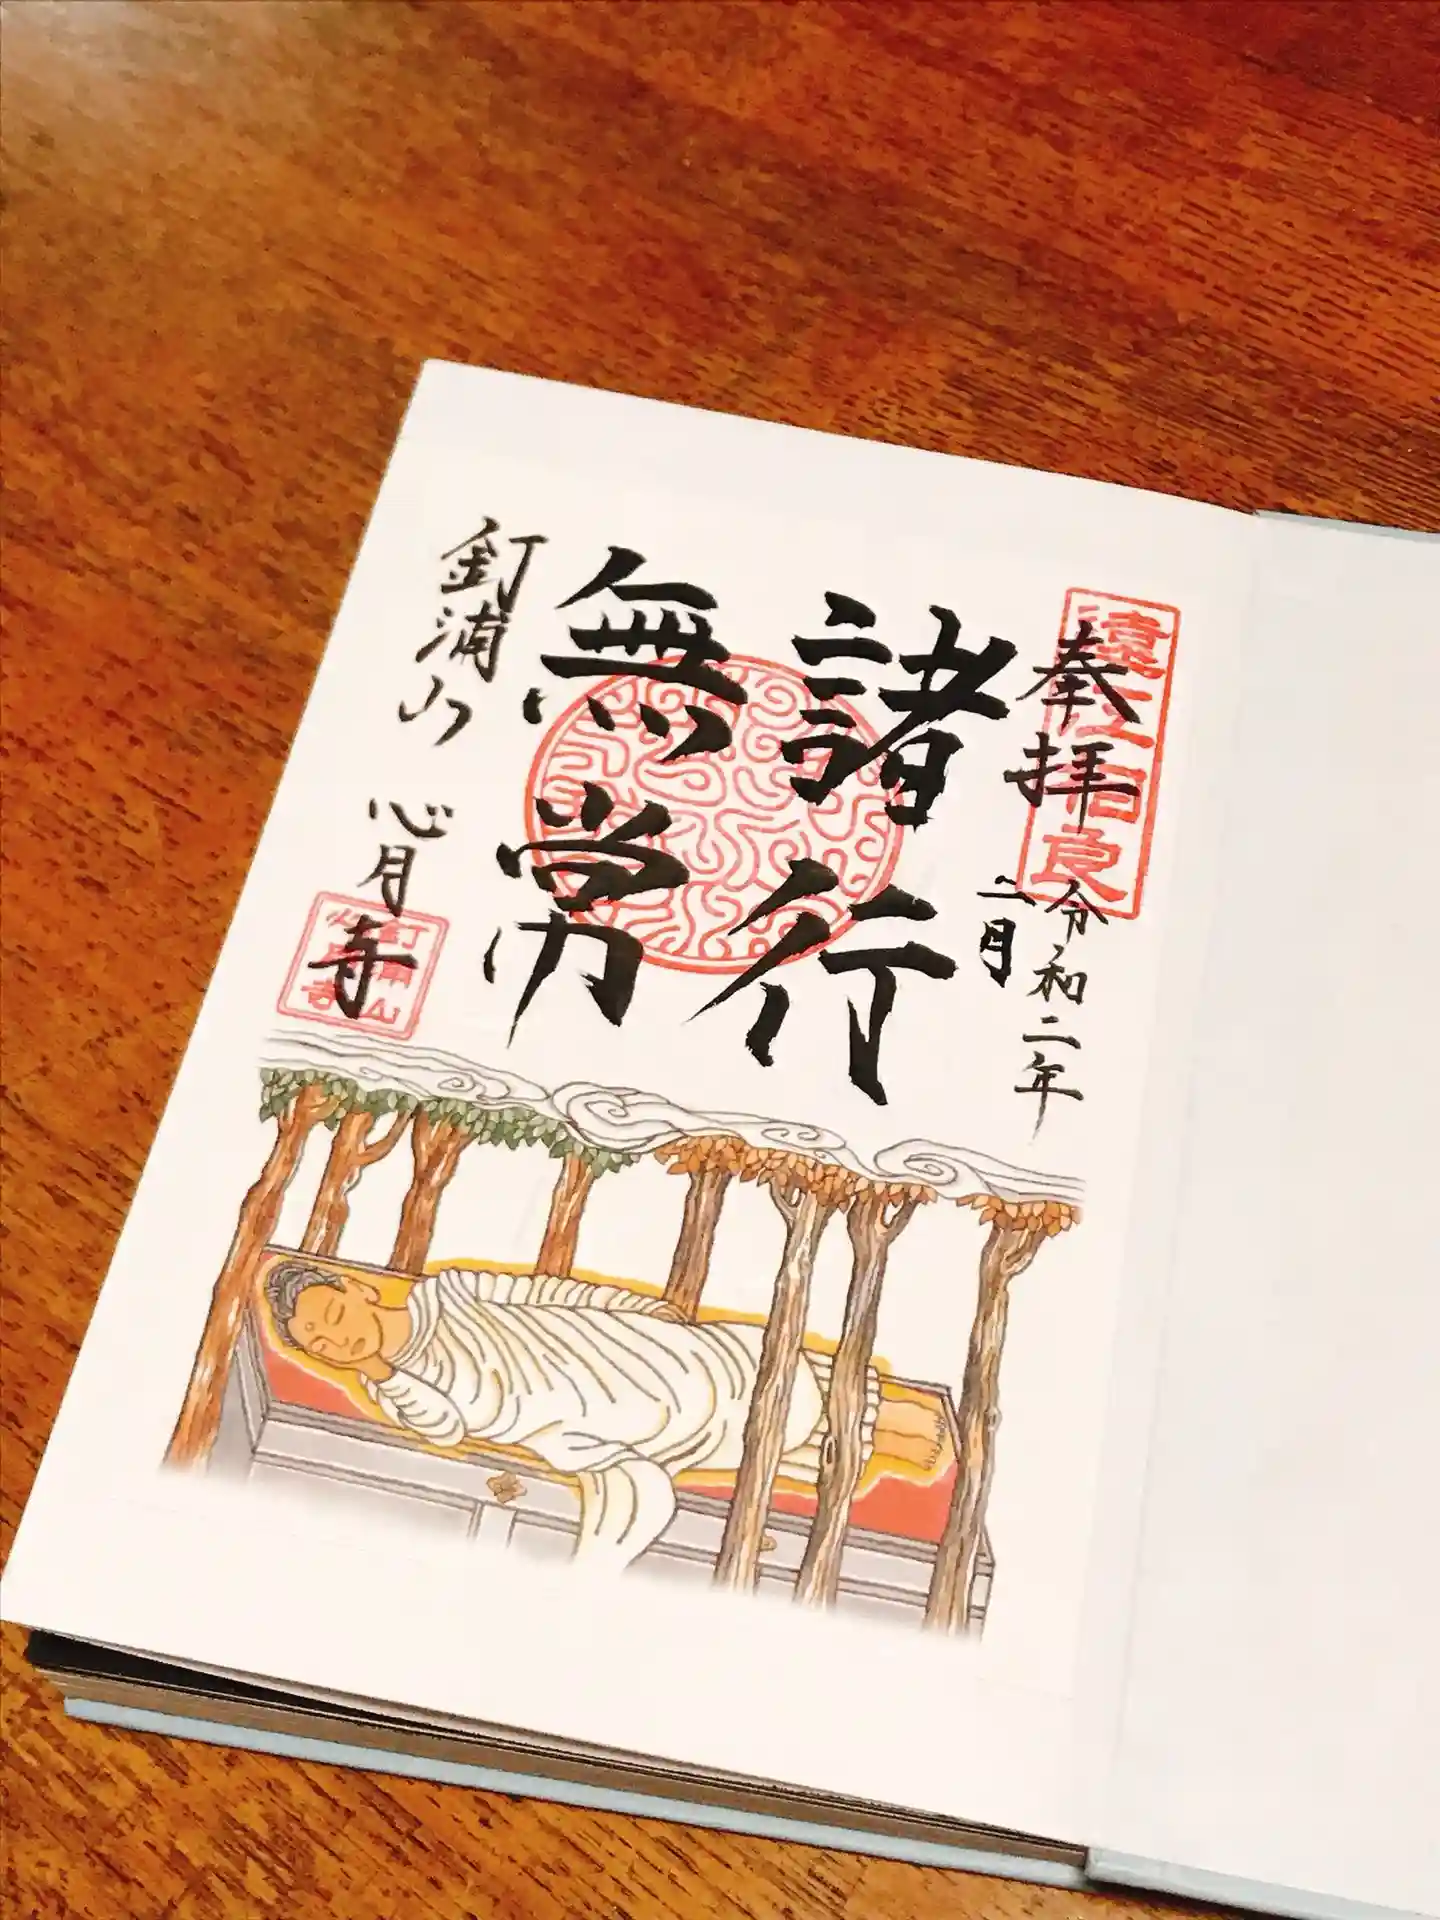 奉拝
遠江相良
令和二年
二月
諸行
無常
釘浦山
心月寺
釘浦山
心月寺